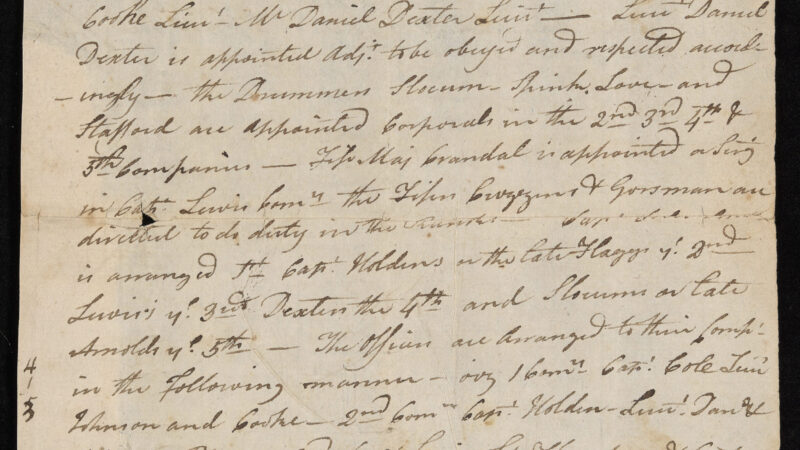 Cooke Lieut. Mr Daniel Dexter Lieut. — Lieut. Daniel
Dexter is appointed Adjt. to be obeyed and respected accord-
-ingly — the Drummers Slocum - Rink, Love - and
Stafford are appointed Corporals in the 2nd 3rd 4th &
5th Companies — Fife Maj Crandal is appointed a Serj.
in Capt. Lewis Comy. the Fifers & Gorsman are
directed to do duty in the Ranks —
is arranged 1st Capt. Holdens or the late Flaggs ye. 2nd
Lewis's ye. 3rd Dexters the 4th and Slocums or late
Arnolds ye. 5th — The Officers are arranged to their Comps.
in the following manner - viz 1 Comy. Capt. Cole Lieut.
Johnson and Cooke - 2nd Comy. Capt. Holden - Lieut. &
4
1
5